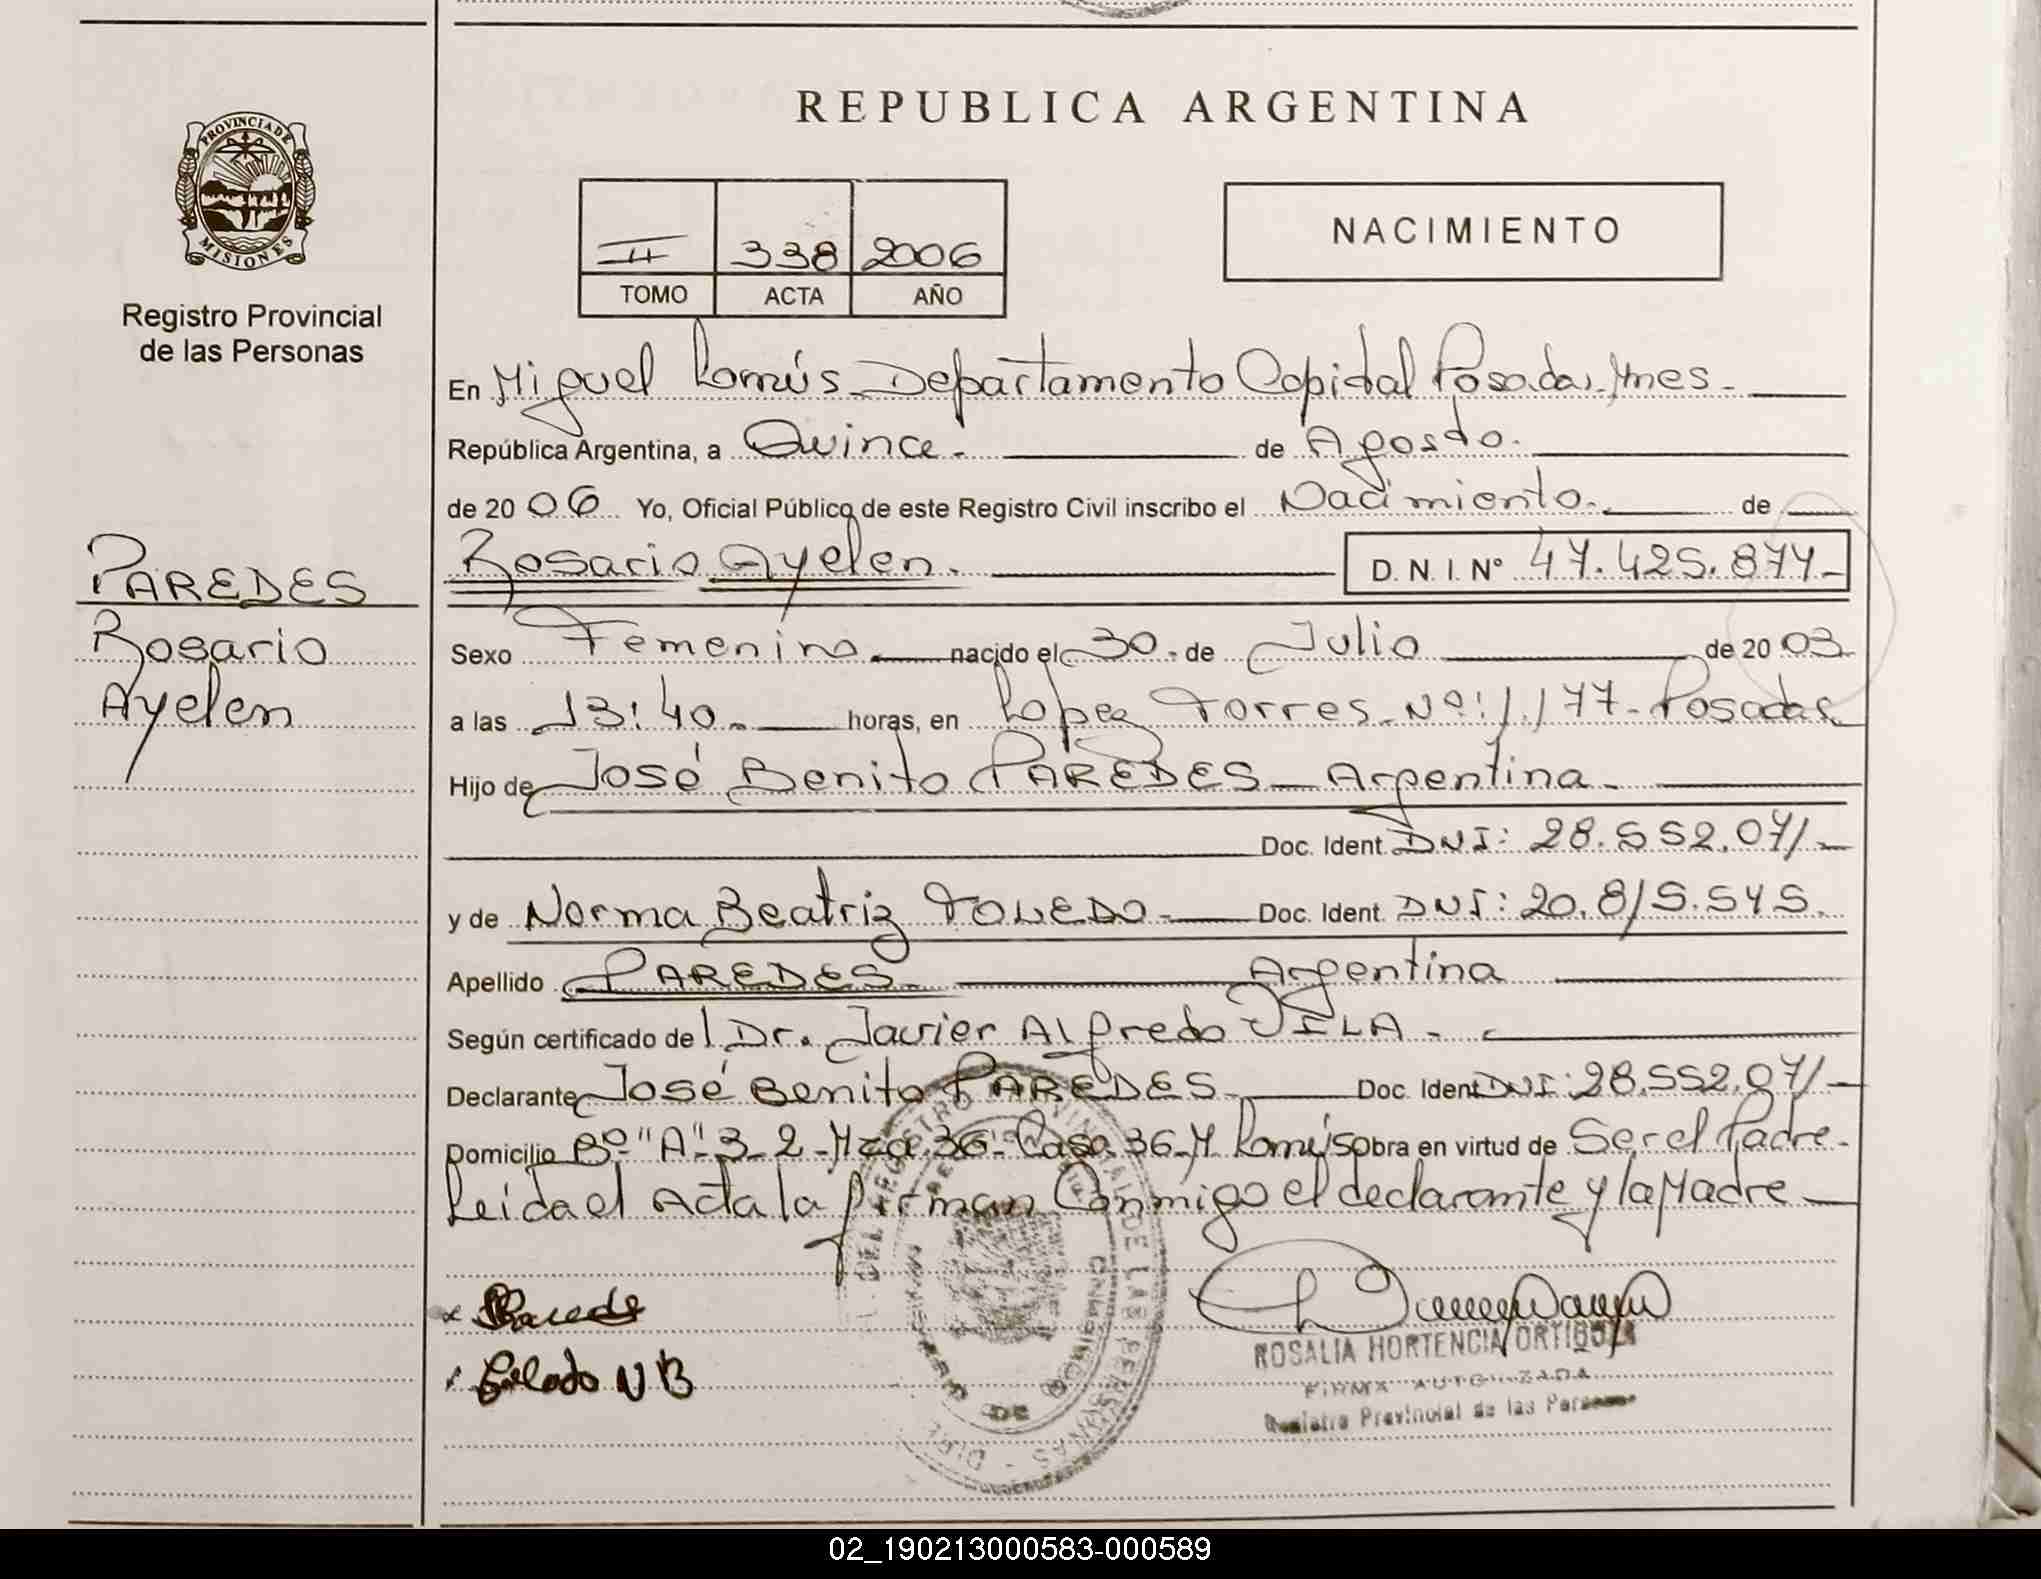 REPUBLICA ARGENTINA
PROVINCIA DE
MISIONES
Registro Provincial
de las Personas
II 338 2006
TOMO ACTA AÑO
NACIMIENTO
En Miguel Lanús - Departamento Capital Posadas Mnes -
República Argentina, a Quince - de Agosto.
de 2006 Yo, Oficial Público de este Registro Civil inscribo el Nacimiento. de
PAREDES
Rosario
Ayelen
Rosario Ayelen. D. N. I. Nº 47.425.874-
Sexo Femenino nacido el 30 - de Julio de 2003
a las 13:40 - horas, en Lopez Torres - Nº: 1.177 - Posadas
Hijo de José Benito PAREDES - Argentina -
Doc. Ident. DNI: 28.552.071 -
y de Norma Beatriz TOLEDO - Doc. Ident. DNI: 20.815.545.
Apellido PAREDES - Argentina
Según certificado del Dr. Javier Alfredo VILA -
Declarante José Benito PAREDES - Doc. Ident DNI: 28.552.071 -
Domicilio Bº "A" 3_2 - Mza. 36 - Casa 36 - M. Lanús obra en virtud de Ser el Padre -
Leida el Acta la firman Conmigo el declarante y la Madre
Toledo NB
ROSALIA HORTENCIA ORTIGOZA
FIRMA AUTORIZADA
Registro Provincial de las Personas
02_190213000583-000589